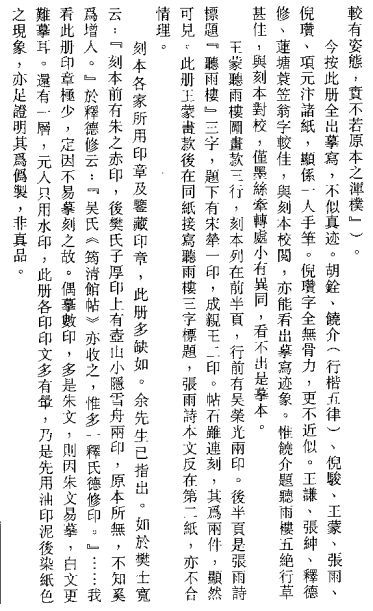 較有姿態，實不若原本之渾樸』）。
今按此册全出摹寫，不似真迹。胡銓、饒介（行楷五律）、倪駿、王蒙、張雨、
倪瓚、項元汴諸紙，顯係一人手筆。倪瓚字全無骨力，更不近似。王謙、張紳、釋德
修、蓮塘蓑笠翁字較佳，與刻本校閲，亦能看出摹寫迹象。惟饒介題聽雨樓五絶行草
甚佳，與刻本對校，僅墨絲牽轉處小有異同，看不出是摹本。
王蒙聽雨樓圖畫款三行，刻本列在前半頁，行前有吴榮光兩印。後半頁是張雨詩
標題『聽雨樓』三字，題下有宋犖一印，成親王二印。帖石雖連刻，其爲兩件，顯然
可見。此册王蒙畫款後在同紙接寫聽雨樓三字標題，張雨詩本文反在第二紙，亦不合
情理。
刻本各家所用印章及鑒藏印章，此册多缺如。余先生已指出。如於樊士寬
云：『刻本前有朱之赤印，後樊氏子厚印上有壺山小隱雪舟兩印，原本所無，不知奚
爲增人。』於釋德修云：『吴氏《筠清館帖》亦收之，惟多一釋氏德修印。』……我
看此册印章極少，定因不易摹刻之故。偶摹數印，多是朱文，則因朱文易摹，白文更
難摹耳。還有一層，元人只用水印，此册各印印文多有暈，乃是先用油印泥後染紙色
之現象，亦足證明其爲僞製，非真品。